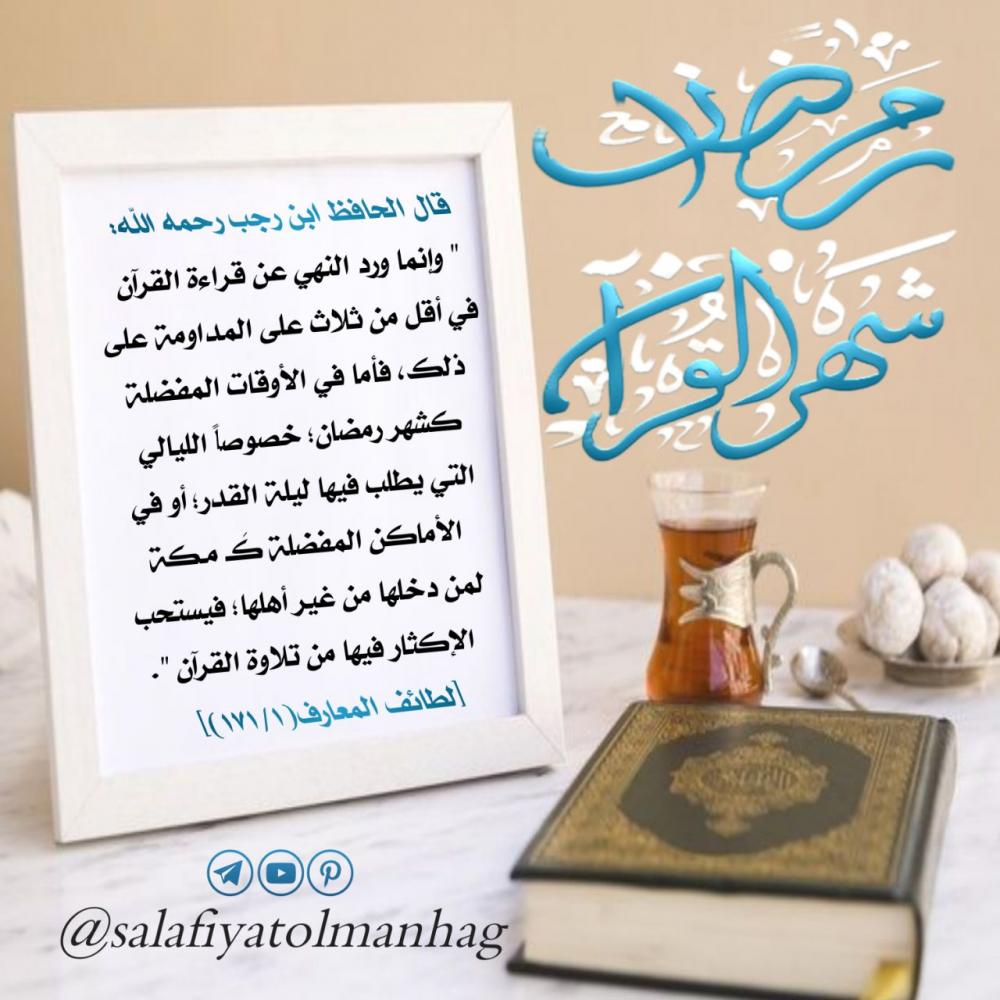 رمضان
شهر القرآن
قال الحافظ ابن رجب رحمه الله:
" وإنما ورد النهي عن قراءة القرآن
في أقل من ثلاث على المداومة على
ذلك، فأما في الأوقات المفضلة
كشهر رمضان؛ خصوصاً الليالي
التي يطلب فيها ليلة القدر؛ أو في
الأماكن المفضلة كَـ مكة
لمن دخلها من غير أهلها؛ فيستحب
الإكثار فيها من تلاوة القرآن ".
[لطائف المعارف(١/١٧١)]
@salafiyatolmanhag